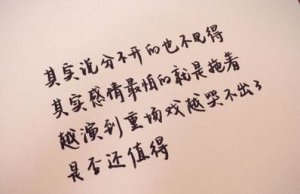 其实说分不开的也不见得
其实感情最怕的就是拖着
越演到重场戏越哭不出了
是否还值得